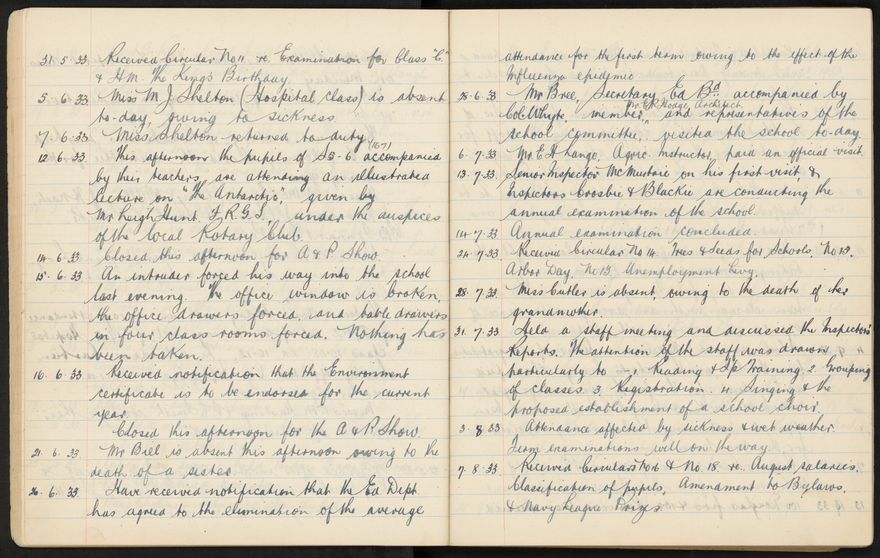 31. 5. 33 Received Circular No 11 re. Examination for Class "C."
& H.M. The King's Birthday.
5. 6. 33 Miss M J Shelton (Hospital Class) is absent
to-day, owing to sickness.
7. 6. 33 Miss Shelton returned to duty.
12. 6. 33 This afternoon the pupils of S5-6 (167) accompanied
by their teachers, are attending an illustrated
lecture on "The Antarctic", given by
Mr Leigh Hunt F.R.G.S., under the auspices
of the local Rotary Club.
14. 6. 33 Closed this afternoon for A & P. Show.
15. 6. 33 An intruder forced his way into the school
last evening. The office window is broken,
the office drawers forced, and table drawers
in four class rooms forced. Nothing has
been taken.
16. 6. 33 Received notification that the Environment
certificate is to be endorsed for the current
year.
Closed this afternoon for the A & P. Show.
21. 6. 33 Mr Bell is absent this afternoon owing to the
death of a sister.
26. 6. 33 Have received notification that the Ed Dept
has agreed to the elimination of the average
attendance for the first term owing to the effect of the
Influenza epidemic.
28. 6. 33 Mr Bree, Secretary Ed Bd accompanied by
Cole Whyte, member, Mr. C.R. Hodge, Architect and representatives of the
school committee, visited the school to-day.
6. 7. 33 Mr E H Lange, Agric. Instructor, paid an official visit.
13. 7. 33 Senior Inspector McMurtrie on his first visit &
Inspectors Crosbie & Blackie are conducting the
annual examination of the school.
14. 7. 33 Annual examination concluded.
24. 7. 33 Received Circular No 14. Trees & Seeds for Schools, No 13.
Arbor Day, No 12. Unemployment Levy.
28. 7. 33. Miss Cutler is absent, owing to the death of her
grandmother.
31. 7. 33 Held a staff meeting and discussed the Inspectors'
Reports. The attention of the staff was drawn
particularly to 1 Reading & Sp Training 2. Grouping
of classes 3. Registration. 4. Singing & the
proposed establishment of a school choir.
3. 8. 33 Attendance affected by sickness & wet weather.
Term examinations well on the way.
7. 8. 33. Received Circulars No 16 & No. 18 re. August salaries.
Classification of pupils, Amendment to Bylaws,
& Navy League Prizes.